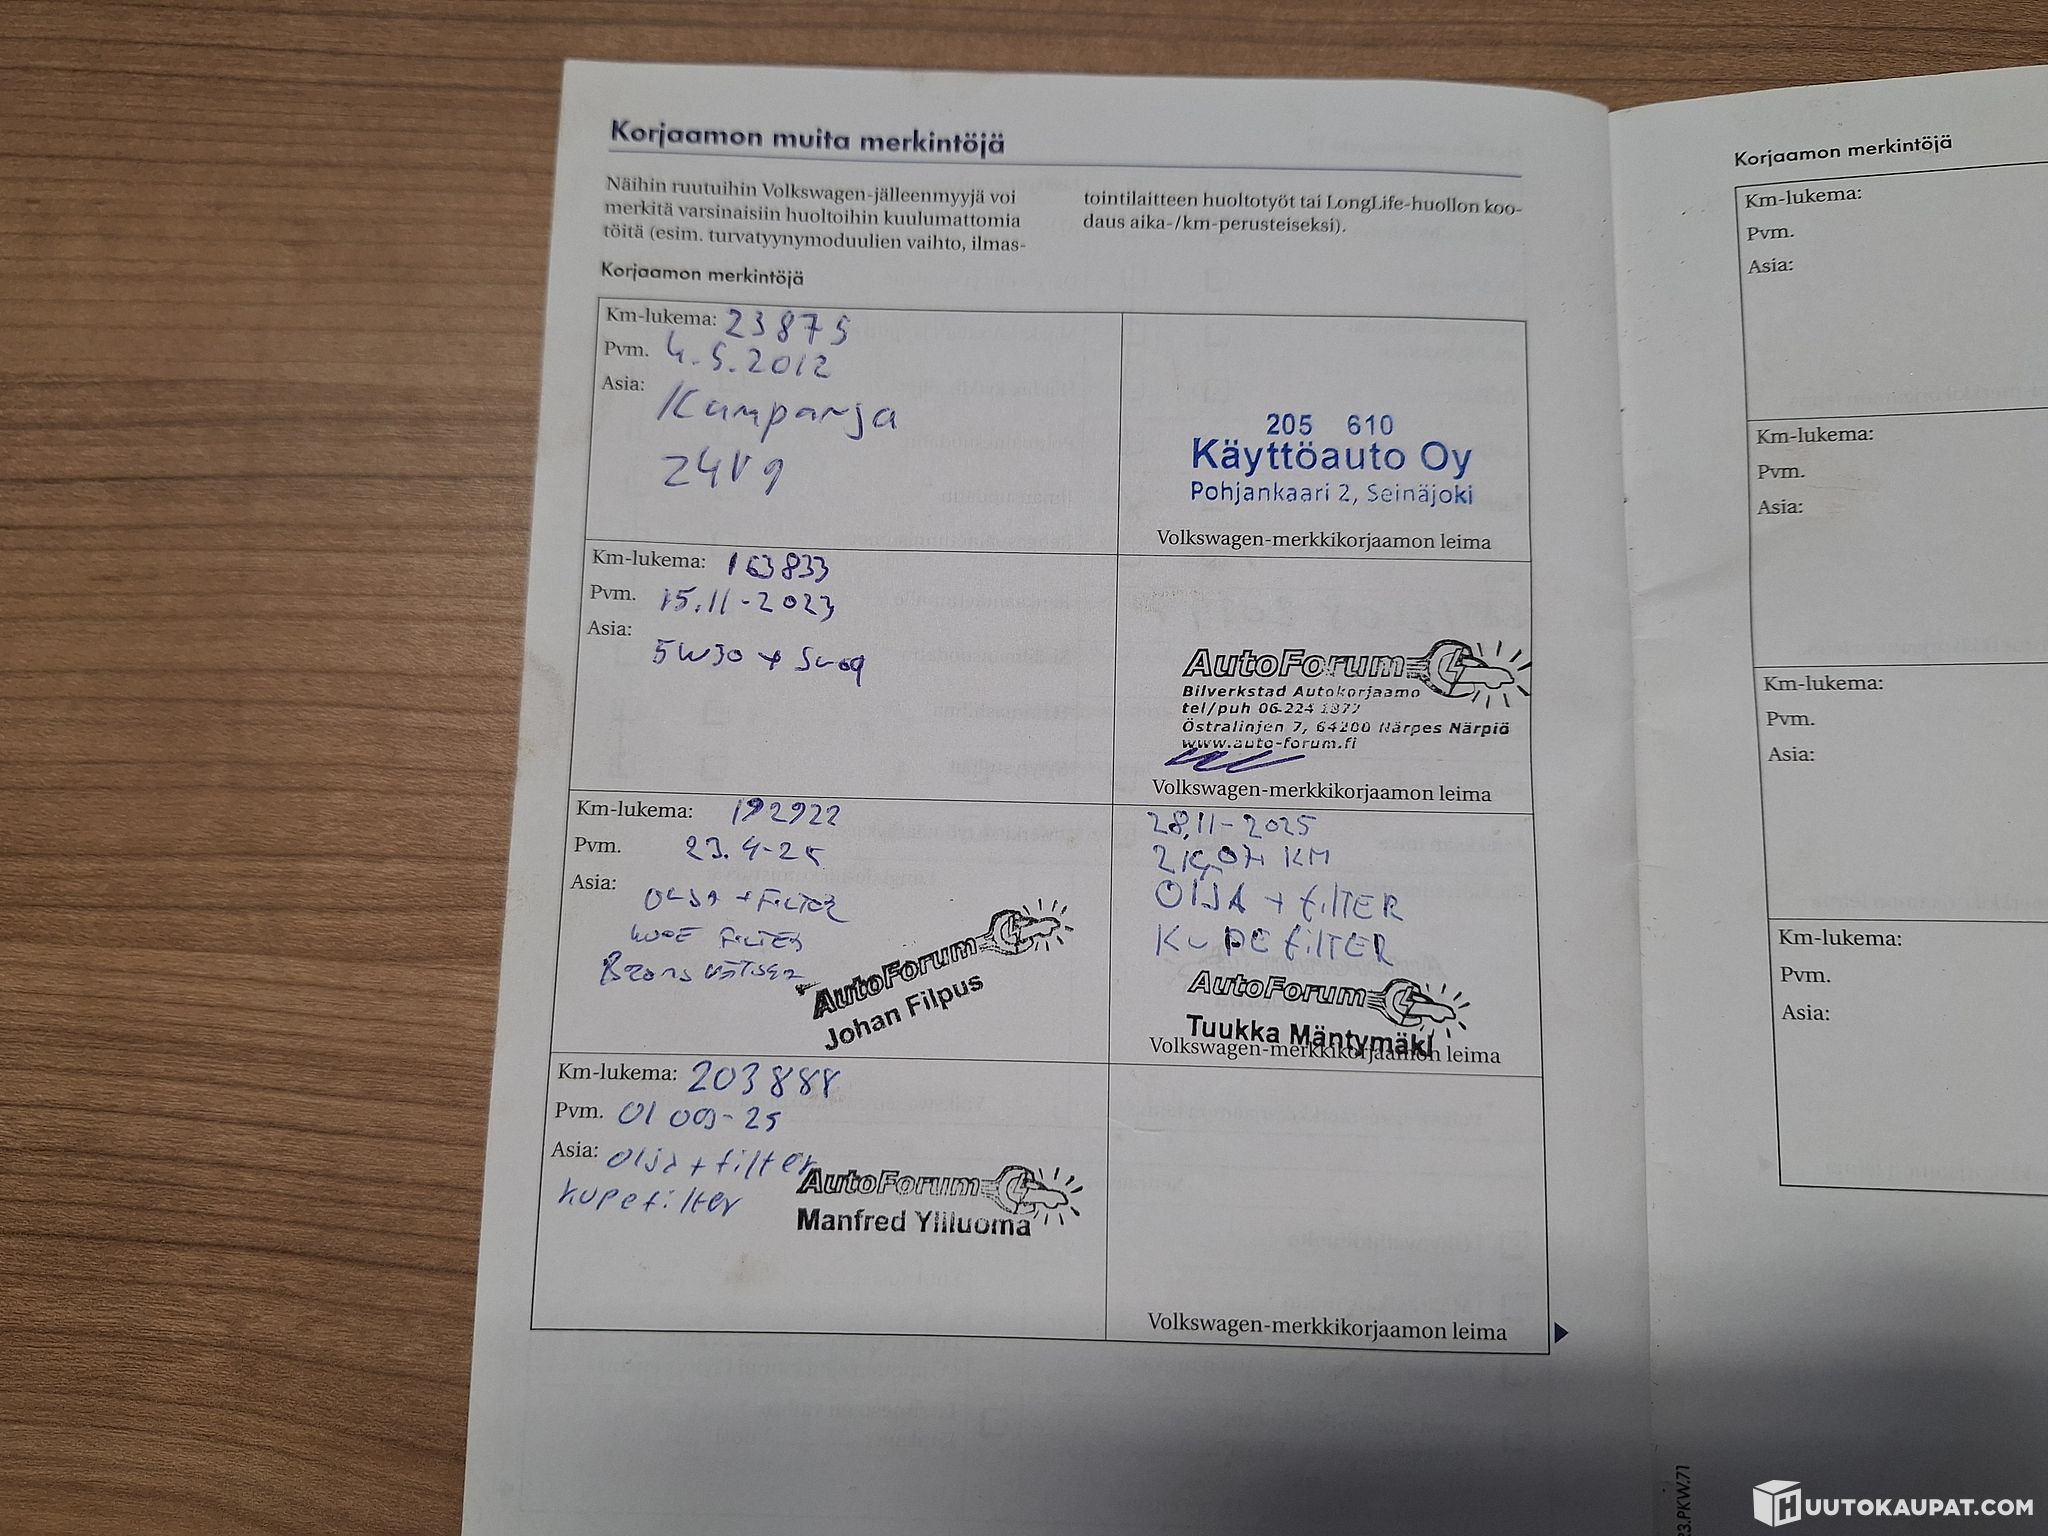 Korjaamon muita merkintöjä
Näihin ruutuihin Volkswagen-jälleenmyyjä voi
merkitä varsinaisiin huoltoihin kuulumattomia
töitä (esim. turvatyynymoduulien vaihto, ilmas-
tointilaitteen huoltotyöt tai LongLife-huollon koo-
daus aika-/km-perusteiseksi).
Korjaamon merkintöjä
Km-lukema: 23875
Pvm. 4.5.2012
Asia: Kampanja
24V9
205 610
Käyttöauto Oy
Pohjankaari 2, Seinäjoki
Volkswagen-merkkikorjaamon leima
Km-lukema: 163833
Pvm. 15.11-2023
Asia:
5W30 +
AutoForum
Bilverkstad Autokorjaamo
tel/puh 06-224 1877
Östralinjen 7, 64200 Närpes Närpiö
www.auto-forum.fi
Volkswagen-merkkikorjaamon leima
Km-lukema: 192922
Pvm. 23.4-25
Asia:
OLJA + FILTER
KUPE FILTER
BROMS VÄTSKA
AutoForum
Johan Filpus
28.11-2025
KM
OLJA + filTER
KUPE filTER
AutoForum
Tuukka Mäntymäki
Volkswagen-merkkikorjaamon leima
Km-lukema: 203888
Pvm. 01 09-25
Asia: olja + filter
kupefilter
AutoForum
Manfred Yliluoma
Volkswagen-merkkikorjaamon leima
Korjaamon merkintöjä
Km-lukema:
Pvm.
Asia:
Km-lukema:
Pvm.
Asia:
Km-lukema:
Pvm.
Asia:
Km-lukema:
Pvm.
Asia:
23.PKW.71
HUUTOKAUPAT.COM